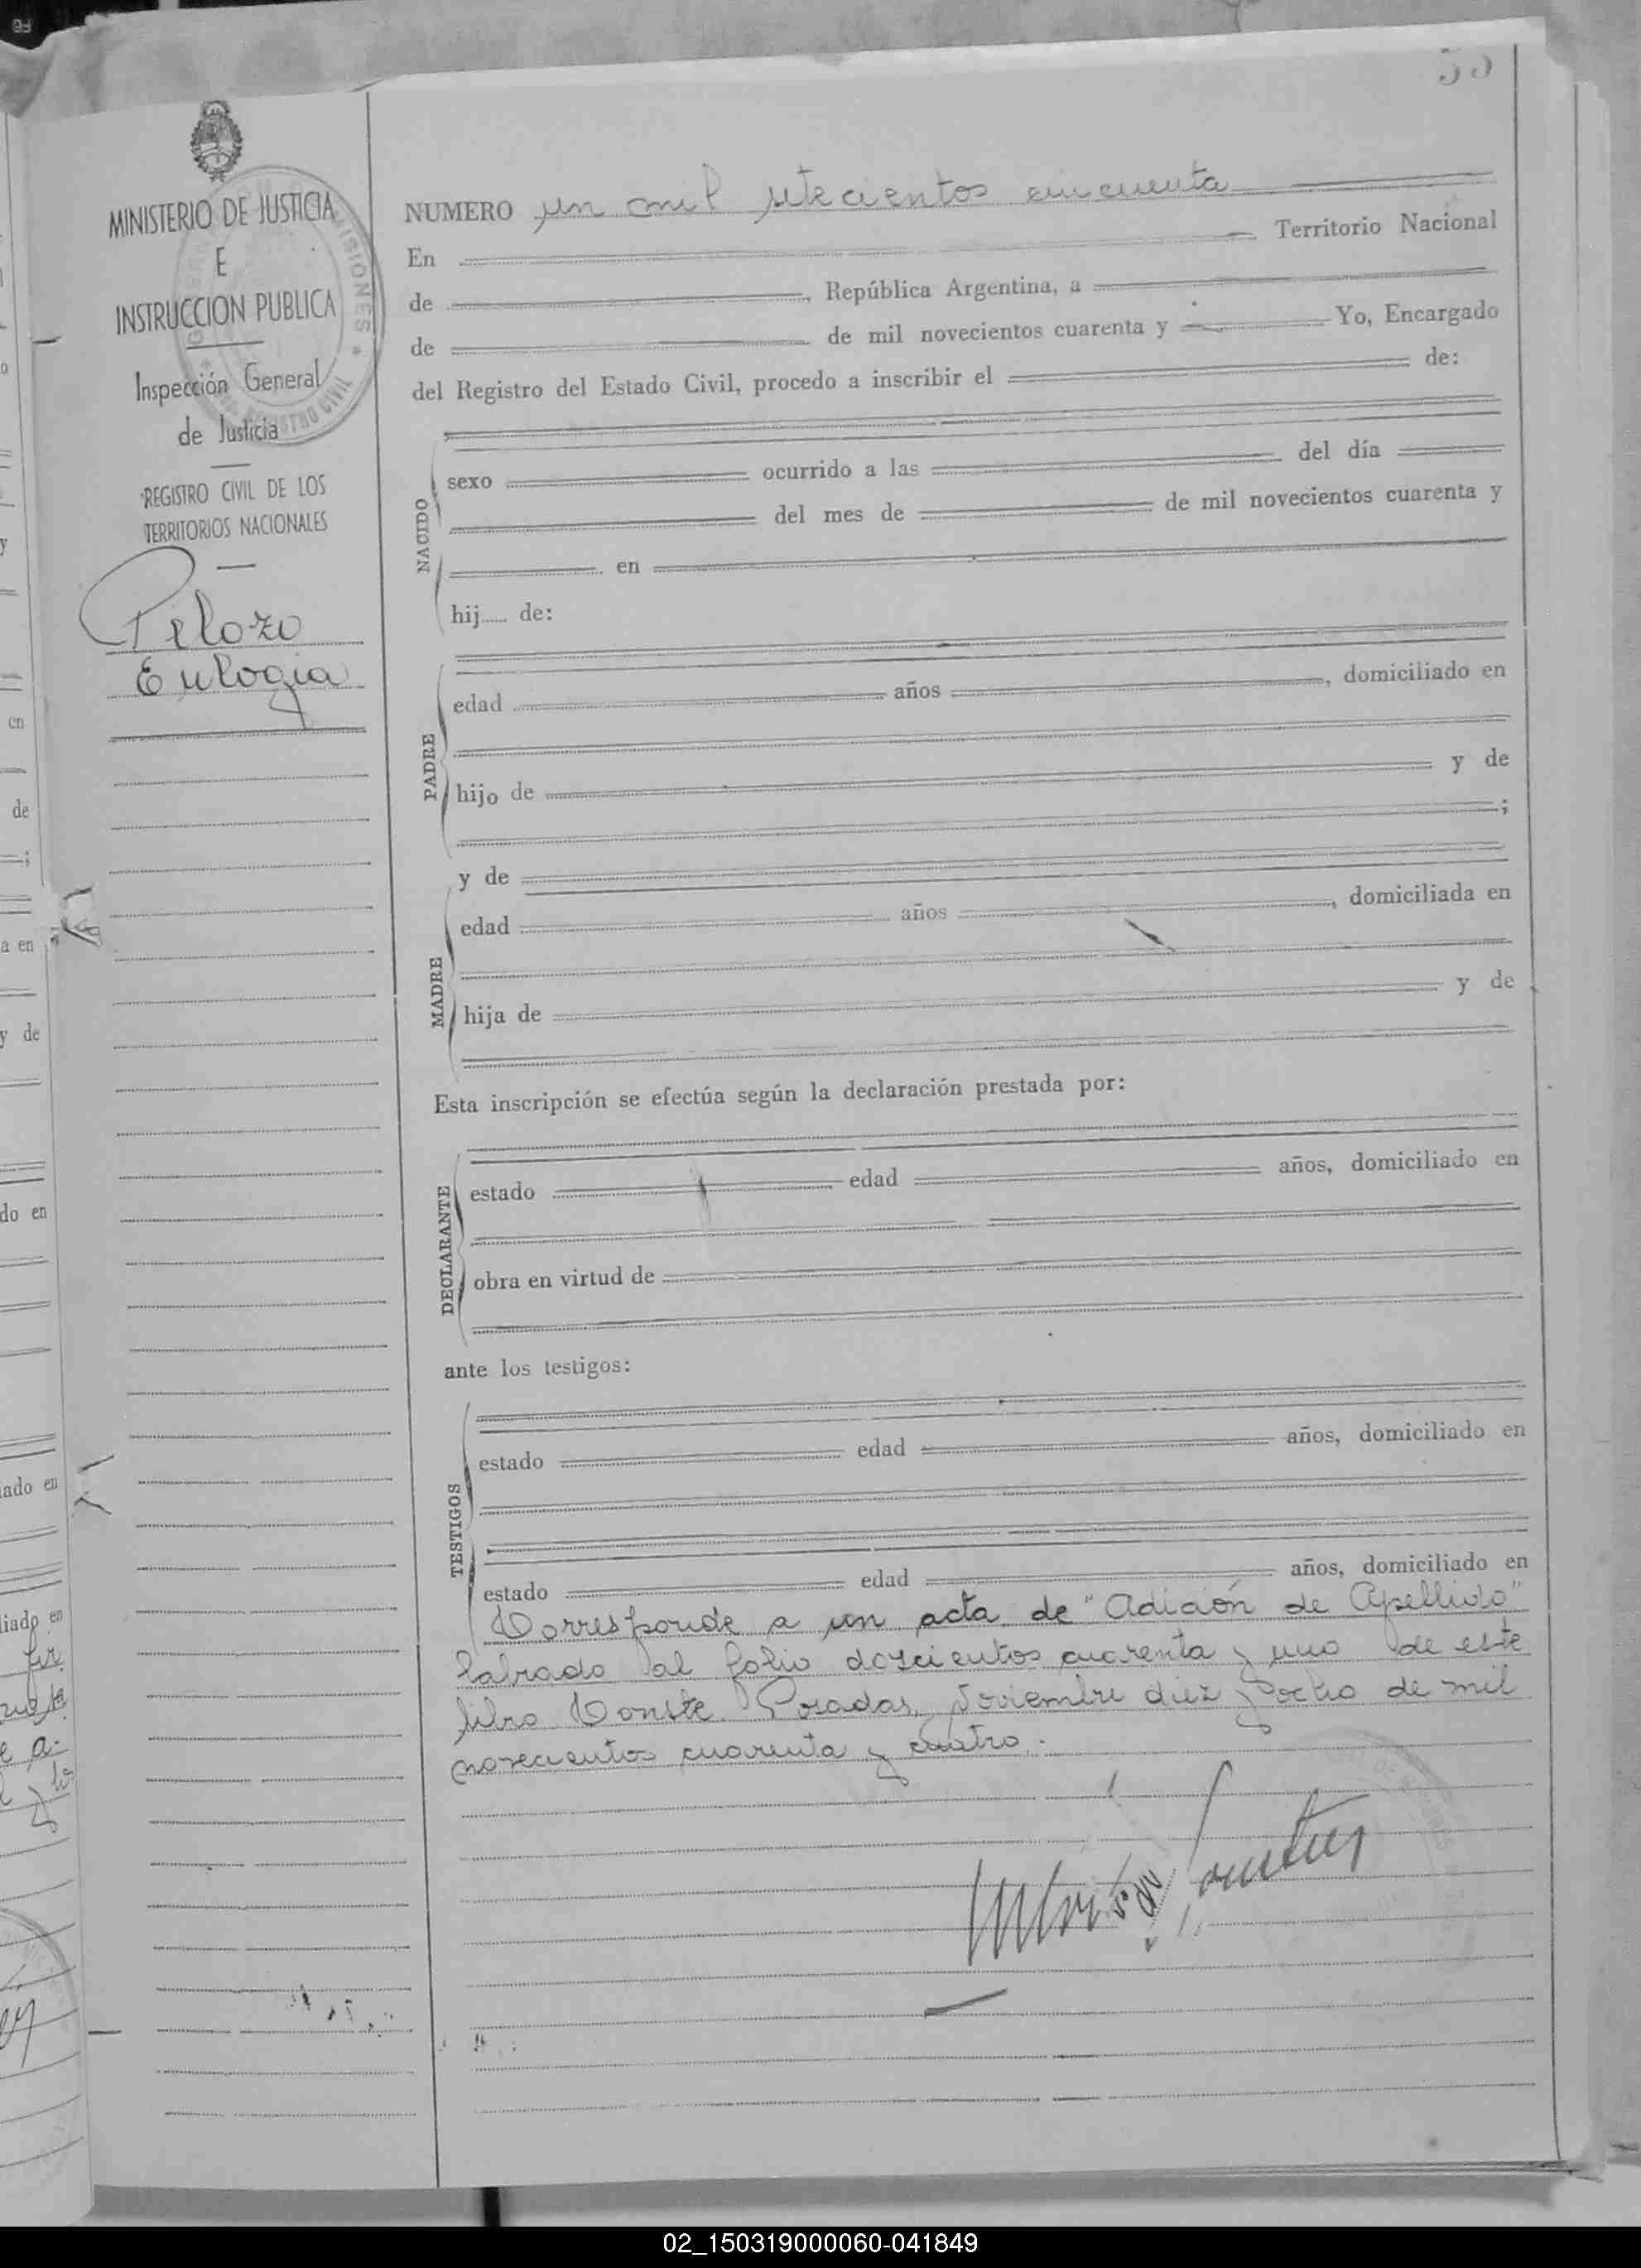 55
MINISTERIO DE JUSTICIA
E
INSTRUCCION PUBLICA
Inspección General
de Justicia
REGISTRO CIVIL DE LOS
TERRITORIOS NACIONALES
Pelozo
Eulogia
NUMERO un mil setecientos cincuenta
En Territorio Nacional
de , República Argentina, a
de de mil novecientos cuarenta y Yo, Encargado
del Registro del Estado Civil, procedo a inscribir el de:
NACIDO
sexo ocurrido a las del día
del mes de de mil novecientos cuarenta y
en
hij..... de:
PADRE
edad años , domiciliado en
hijo de y de
;
y de
MADRE
edad años , domiciliada en
hija de y de
Esta inscripción se efectúa según la declaración prestada por:
DECLARANTE
estado edad años, domiciliado en
obra en virtud de
ante los testigos:
TESTIGOS
estado edad años, domiciliado en
estado edad años, domiciliado en
Corresponde a un acta de "Adición de Apellido"
labrado al folio doscientos cuarenta y uno de este
libro Conste. Posadas, Noviembre diez y ocho de mil
novecientos cuarenta y cuatro.-
02_150319000060-041849